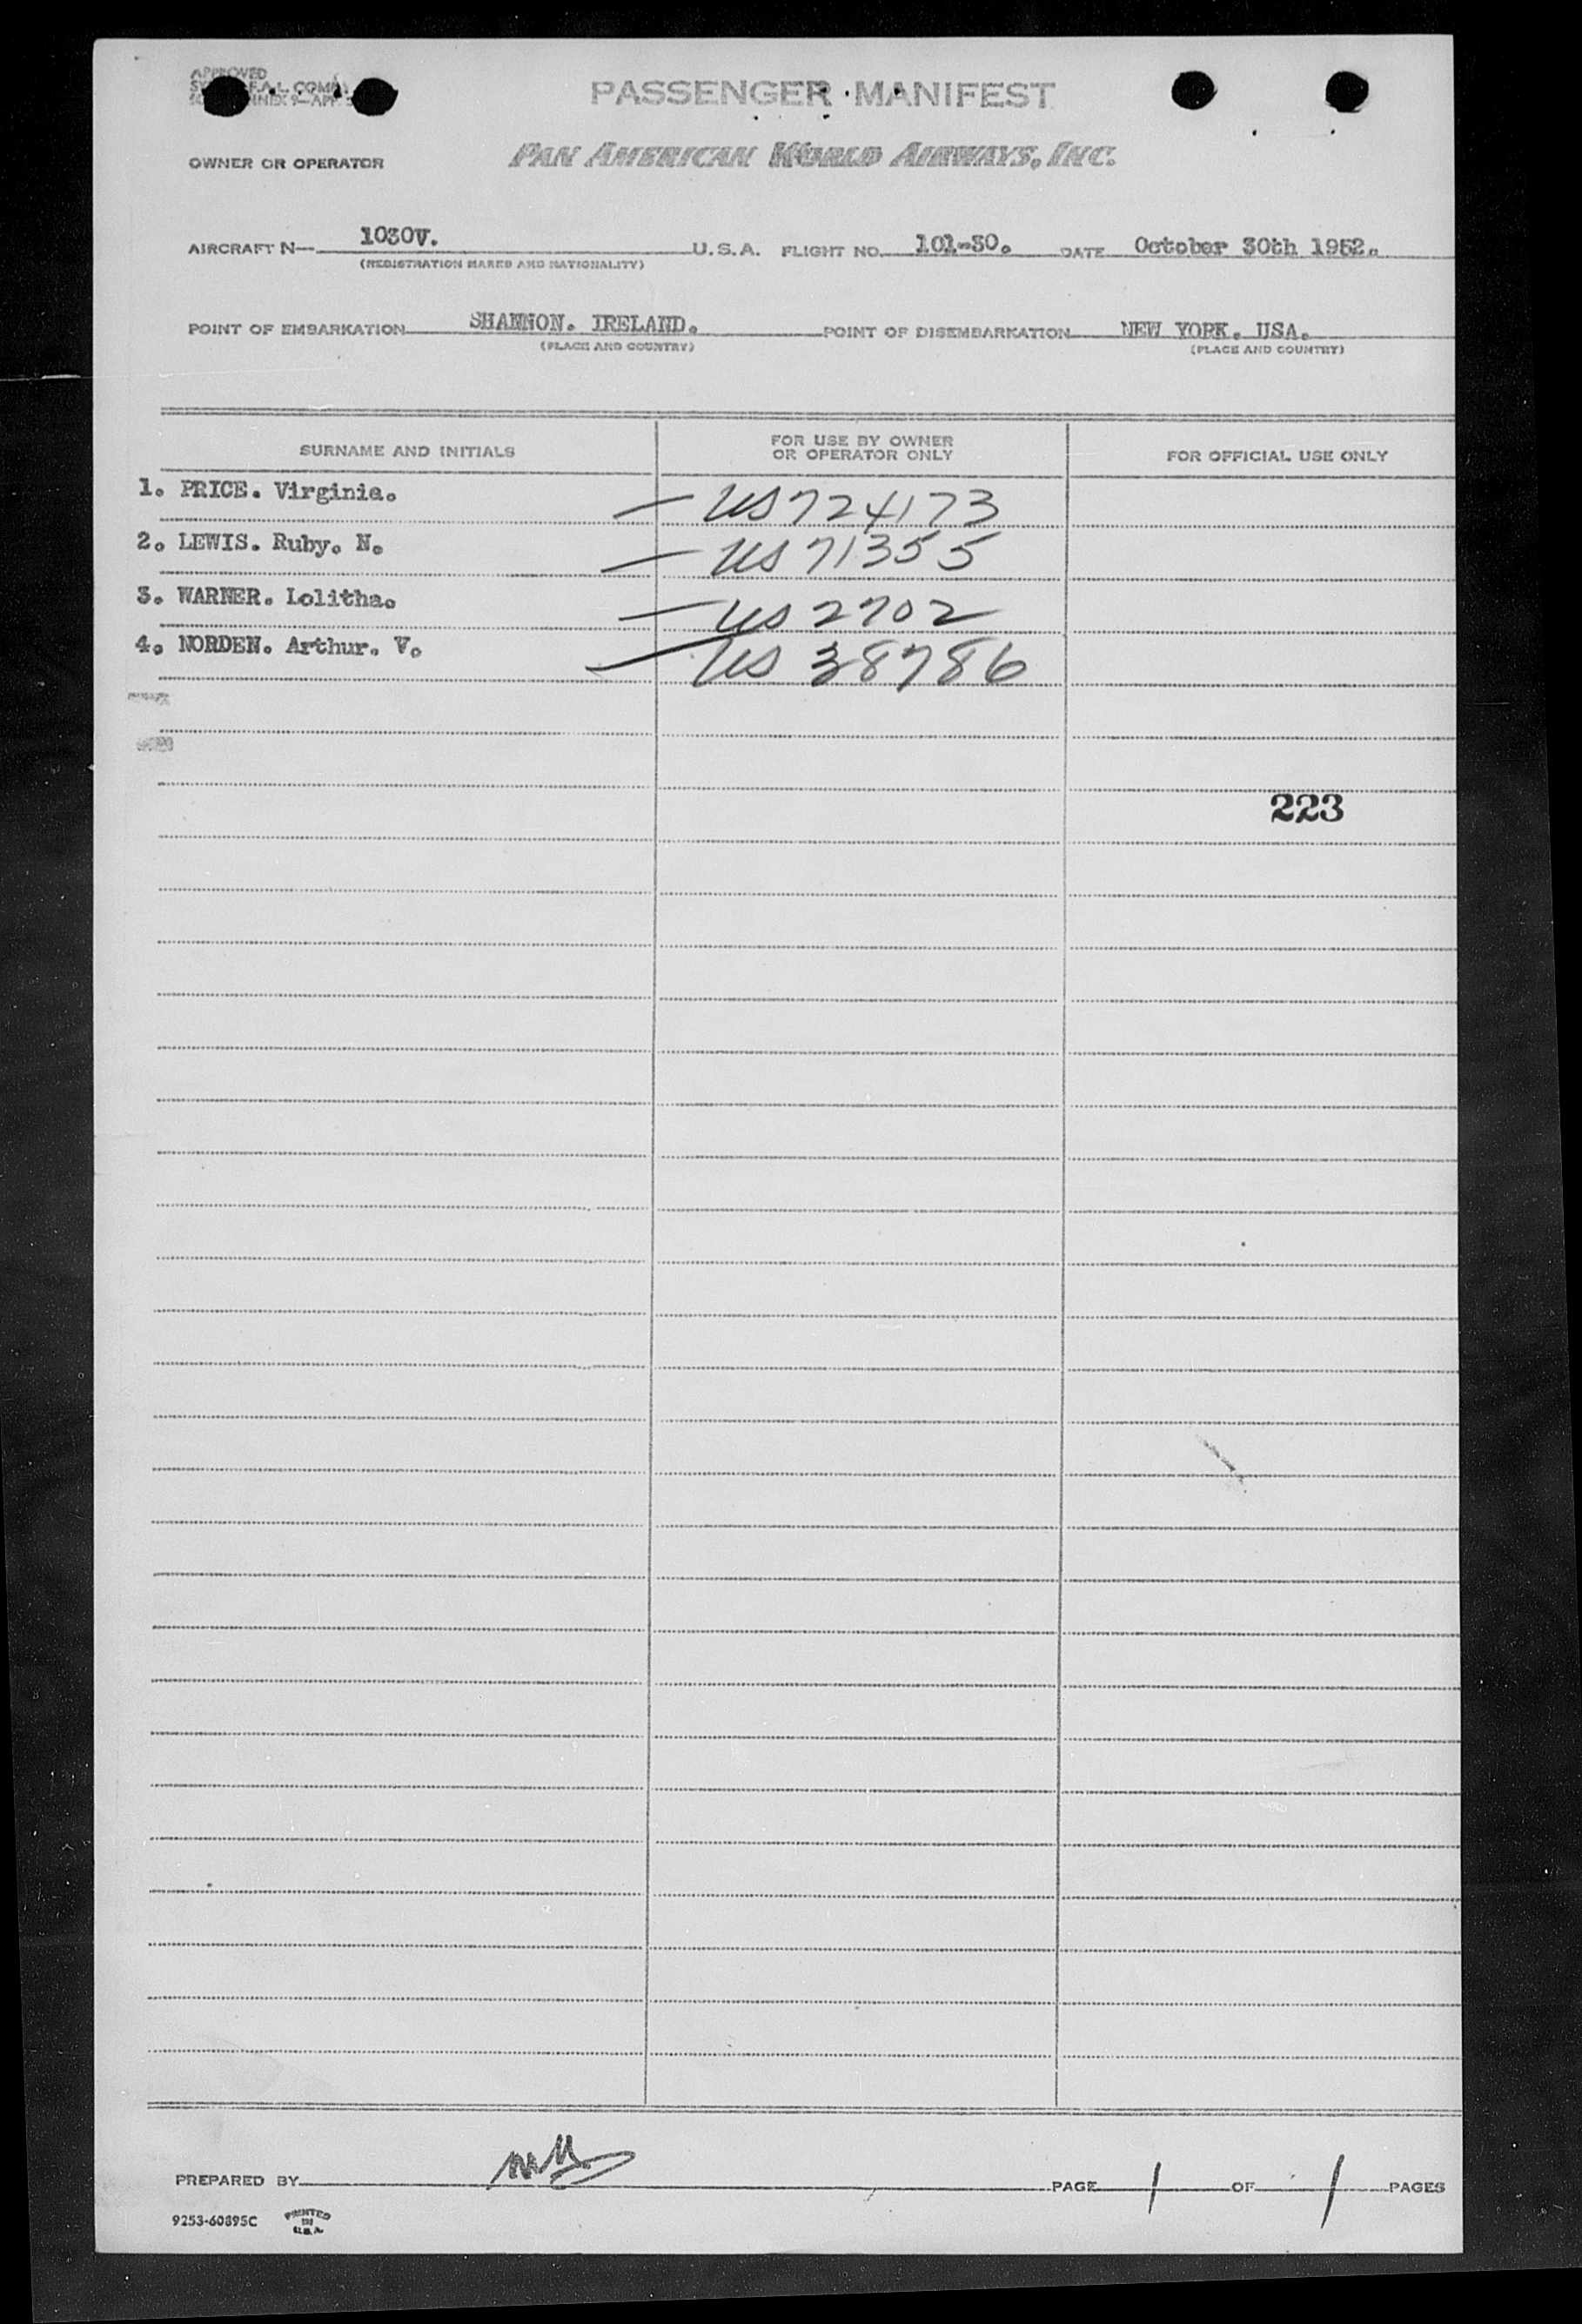 APPROVED
F.A.L. COM
ANNEX 9-APP
PASSENGER MANIFEST
OWNER OR OPERATOR PAN AMERICAN WORLD AIRWAYS, INC.
AIRCRAFT N- 1030V. U.S.A. FLIGHT NO. 101-30. DATE October 30th 1952.
(REGISTRATION MARKS AND NATIONALITY)
POINT OF EMBARKATION SHANNON. IRELAND. POINT OF DISEMBARKATION NEW YORK. USA.
(PLACE AND COUNTRY) (PLACE AND COUNTRY)
SURNAME AND INITIALS FOR USE BY OWNER OR OPERATOR ONLY FOR OFFICIAL USE ONLY
1. PRICE. Virginia. — US 724173
2. LEWIS. Ruby. N. — US 71355
3. WARNER. Lolitha. — US 2702
4. NORDEN. Arthur. V. — US 38786
223
PREPARED BY PAGE 1 OF 1 PAGES
9253-60895C PRINTED IN U.S.A.